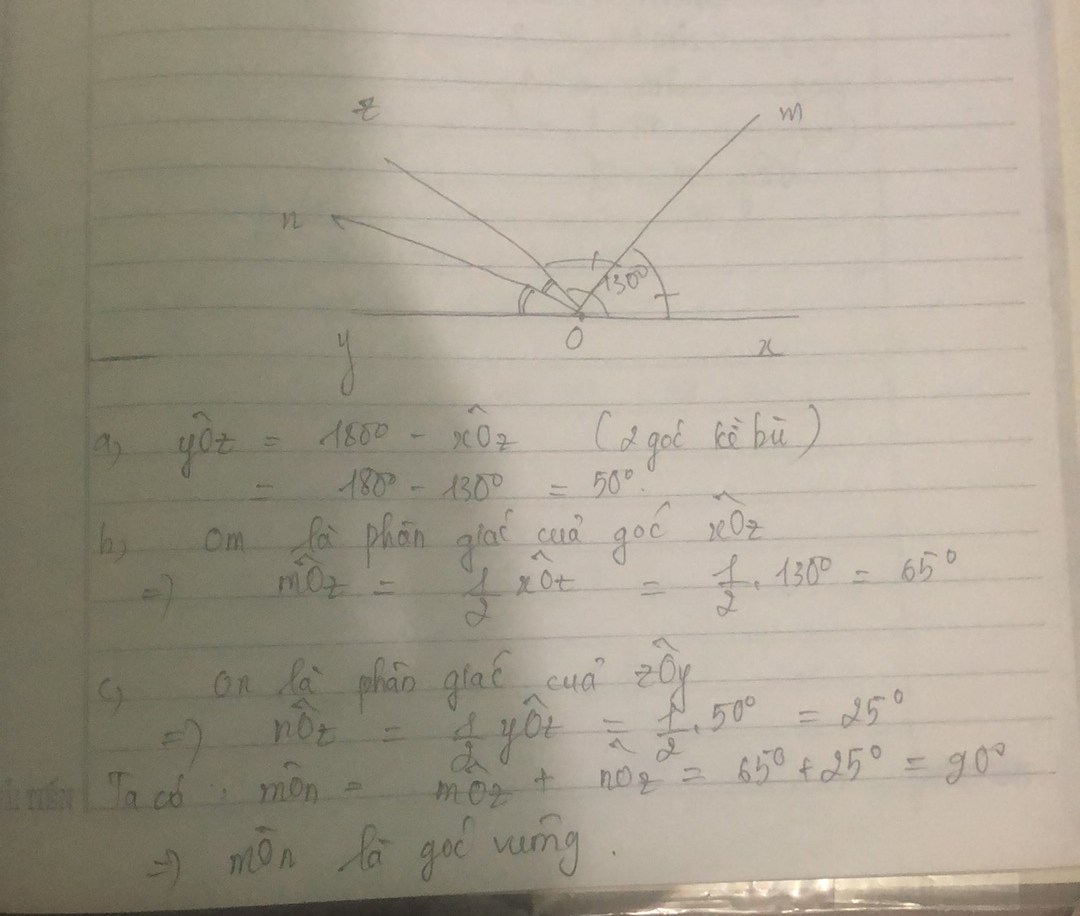 z
m
n
130⁰
y
O
x
a, yÔz = 180⁰ - xÔz (2 góc kề bù)
= 180⁰ - 130⁰ = 50⁰.
b, Om là phân giác của góc xÔz
=) mÔz = 1/2 xÔz = 1/2 . 130⁰ = 65⁰
c, On là phân giác của zÔy
=) nÔz = 1/2 yÔz = 1/2 . 50⁰ = 25⁰
Ta có : mÔn = mÔz + nÔz = 65⁰ + 25⁰ = 90⁰
=) mÔn là góc vuông .